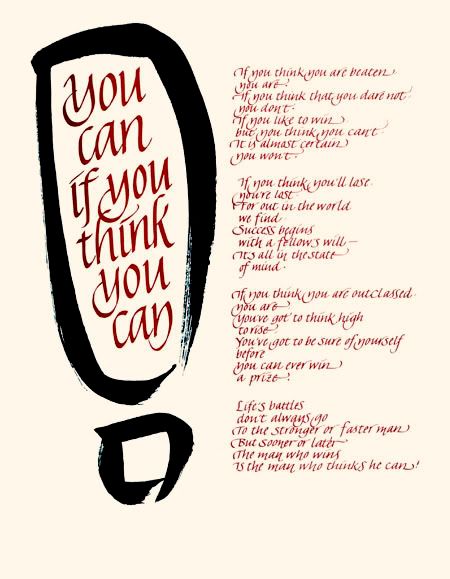 you
can
if you
think
you
can
If you think you are beaten
you are.
if you think that you dare not
you don't.
If you like to win
but you think you can't
It is almost certain
you won't.
If you think you'll lose
you're lost
For out in the world
we find
Success begins
with a fellow's will—
It's all in the state
of mind.
If you think you are outclassed
you are
You've got to think high
to rise
You've got to be sure of yourself
before
you can ever win
a prize.
Life's battles
don't always go
To the stronger or faster man
But sooner or later
The man who wins
Is the man who thinks he can!